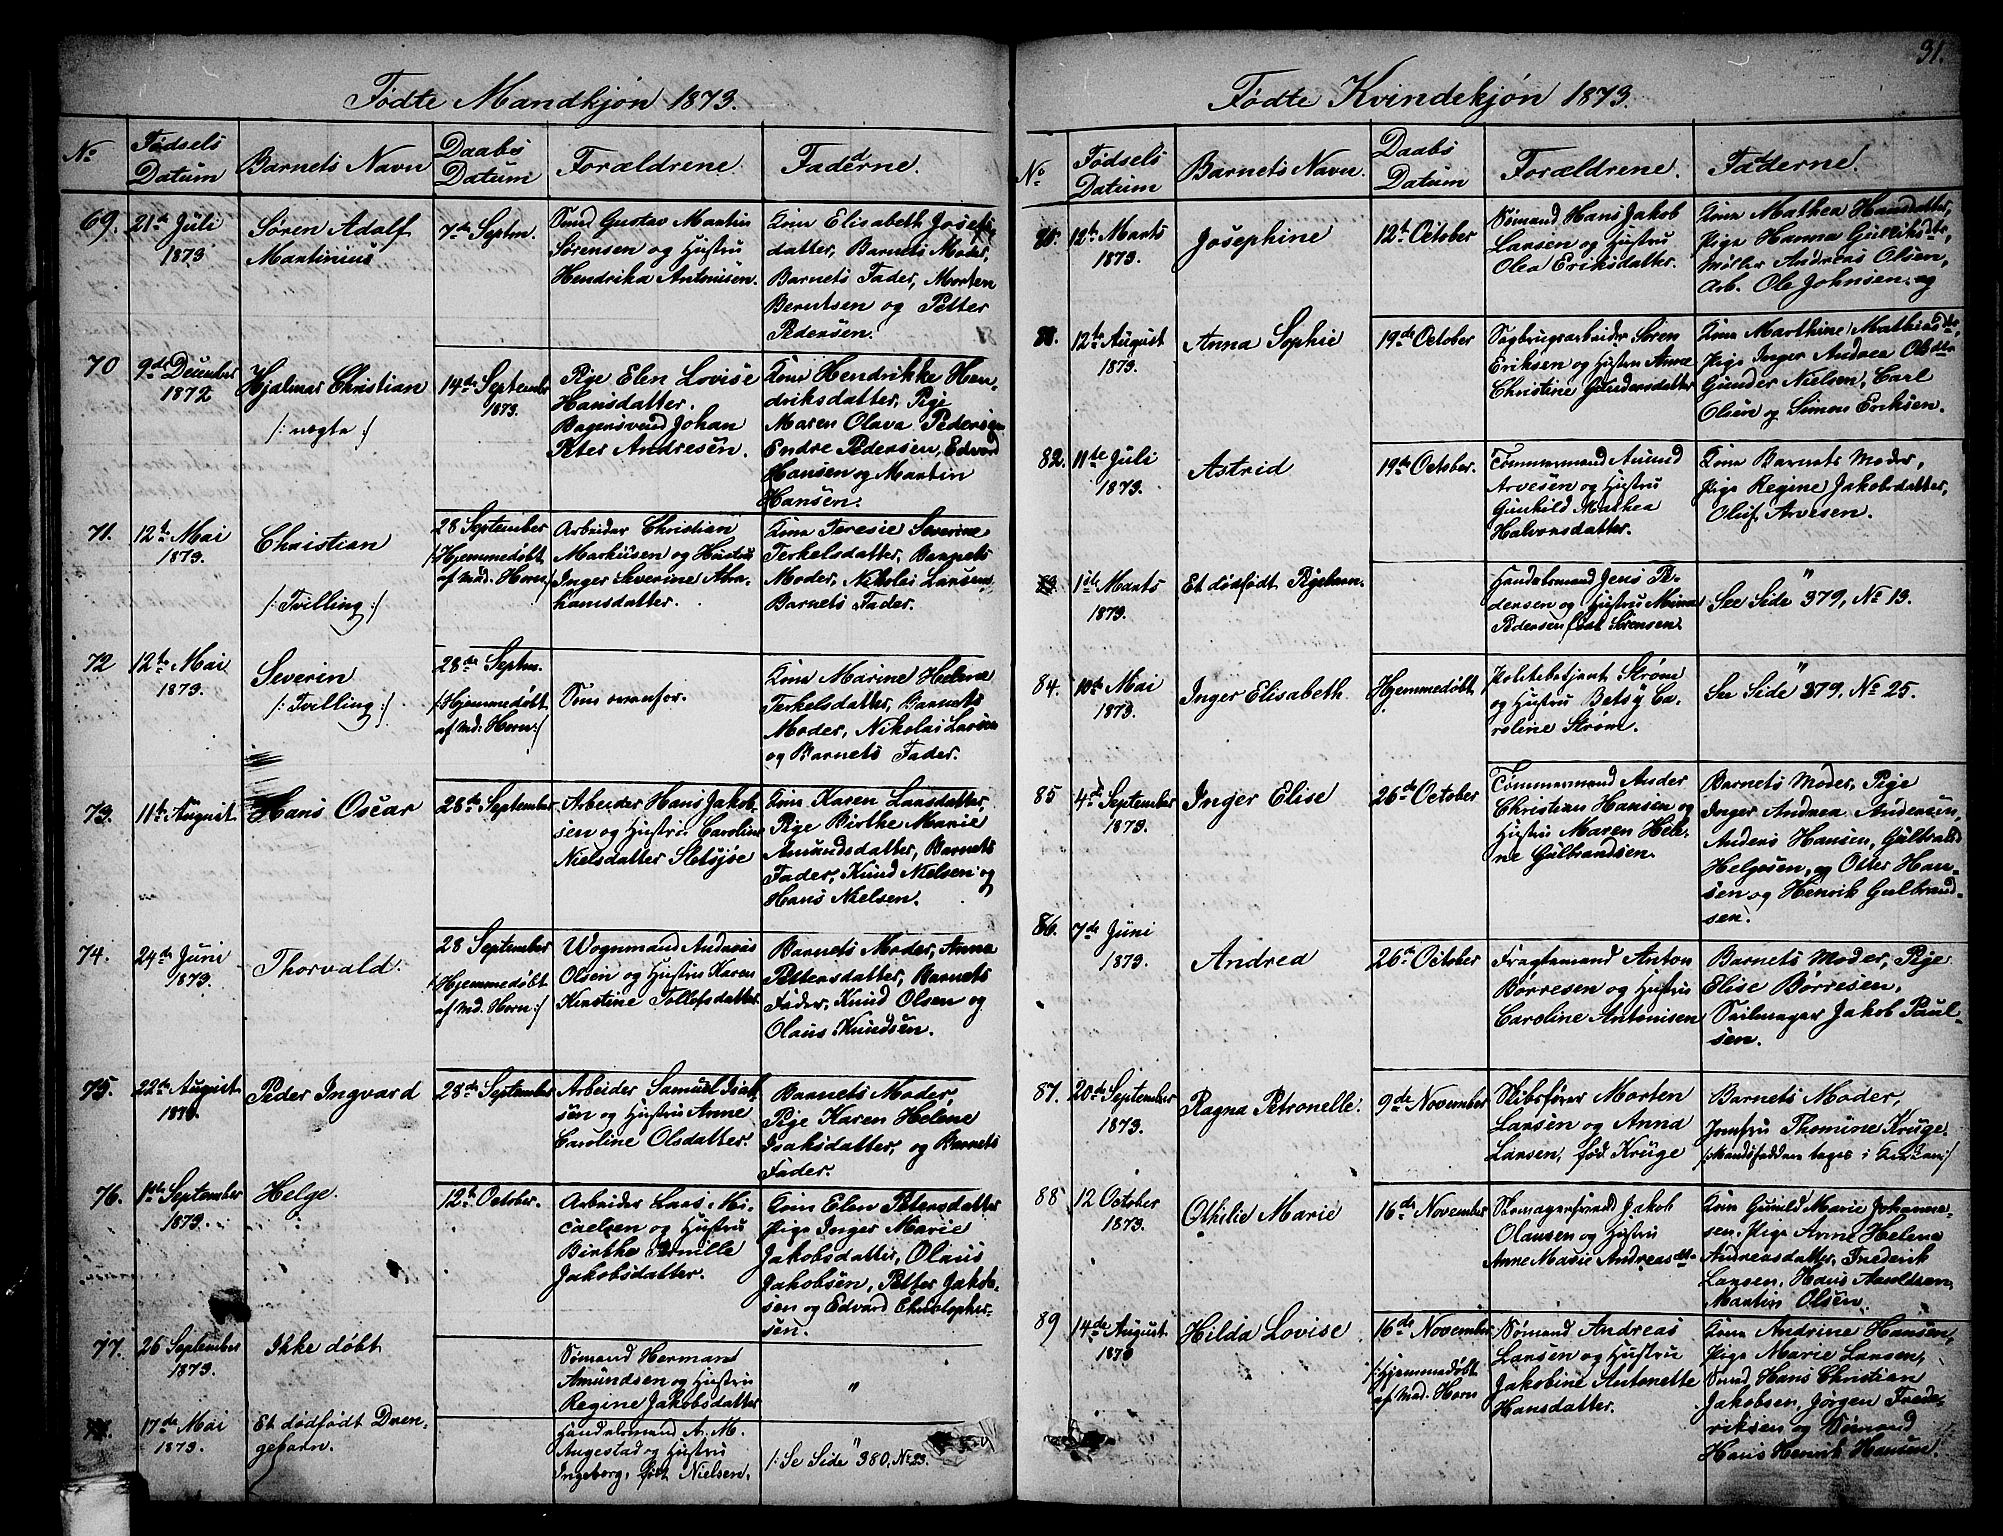 31.
Fødte Mandkjøn 1873.
No
Fødsels Datum
Barnets Navn
Daabs Datum
Forældrene.
Fadderne.
69.
21de Juli
1873
Søren Adolf
Martinius
7de Septm.
Smed Gustav Martin
Sørensen og Hustru
Hendrika Antonisen.
Kone Elisabeth Josefs-
datter, Barnets Moder,
Barnets Fader, Morten
Berntsen og Petter
Pedersen.
70
9de December
1872
Hjalmar Christian
/: uægte :/
14de September
1873.
Pige Elen Lovise
Hansdatter.
Bagersvend Johan
Peter Andresen.
Kone Hendrikke Hen-
driksdatter, Pige
Maren Olava Pedersen
Endre Pedersen, Edvard
Hansen og Martin
Hansen.
71.
12te Mai
1873.
Christian
/: Tvilling :/
28 September
/:Hjemmedøbt
af Md. Horn:/
Arbeider Christian
Markusen og Hustru
Inger Severine Abra-
hamsdatter.
Kone Teresie Severine
Terkelsdatter, Barnets
Moder, Nikolai Larsen,
Barnets Fader.
72
12te Mai
1873.
Severin
/: Tvilling :/
28de Septm.
/:Hjemmedøbt
af Md: Horn:/
Som ovenfor.
Kone Marine Helene
Terkelsdatter, Barnets
Moder, Nikolai Larsen
og Barnets Fader.
73.
11te August
Hans Oscar
28de September
Arbeider Hans Jakob-
sen og Hustru Caroline
Nielsdatter Sletsjøe
Kone Karen Larsdatter,
Pige Birthe Marie
Amundsdatter, Barnets
Fader, Knud Nielsen og
Hans Nielsen.
74.
24de Juni
1873.
Thorvald.
28 September
/:Hjemmedøbt
af Md. Horn:/
Vognmand Andreas
Olsen og Hustru Karen
Kirstine Tollefsdatter.
Barnets Moder, Anne
Pettersdatter, Barnets
Fader, Knud Olsen og
Olaus Knudsen.
75.
22de August
1873
Peder Ingvard
28de September
Arbeider Samuel Isak-
sen og Hustru Anne
Caroline Olsdatter.
Barnets Moder,
Pige Karen Helene
Isaksdatter, og Barnets
Fader.
76.
1ste September
1873.
Helge.
12te October.
Arbeider Lars Mi-
caelsen og Hustru
Birthe Pernille
Jakobsdatter.
Kone Elen Petersdatter
Pige Inger Marie
Jakobsdatter, Olaus
Jakobsen, Petter Jakob-
sen og Edvard Christopher-
sen.
77.
26 September
1873.
Ikke døbt
Sømand Herman
Amundsen og Hustru
Regine Jakobsdatter
"
17de Mai
1873.
Et dødfødt Dren-
gebarn.
Handelsmand A. M.
Angestad og Hustru
Ingeborg, født Nielsen.
/: Se Side 380, No 23.
Fødte Kvindekjøn 1873.
No
Fødsels Datum
Barnets Navn
Daabs Datum
Forældrene.
Fadderne.
12te Marts
1873.
Josephine
12te October
Sømand Hans Jakob
Larsen og Hustru
Olea Eriksdatter.
Kone Mathea Hansdatter,
Pige Hanna Gulliksdtr,
Møller Andreas Olsen,
Arb. Ole Johnsen, og
12te August
1873.
Anna Sophie
19de October
Sagbrugsarbeider Søren
Eriksen og Hustru Anne
Christine Gundersdatter
Kone Marthine Mathiasdtr,
Pige Inger Andrea Olsdtr
Gunder Nielsen, Carl
Olsen og Simon Eriksen.
82.
11te Juli
1873.
Astrid
19de October.
Tømmermand Amund
Arvesen og Hustru
Gunhild Mathea
Halvorsdatter.
Kone Barnets Moder,
Pige Regine Jakobsdatter,
Oluf Arvesen.
1ste Marts
1873.
Et dødfødt Pigebarn
Handelsmand Jens Pe-
dersen og Hustru Mina
Pedersen født Sørensen.
See Side 379, No 13.
84.
10de Mai
1873.
Inger Elisabeth
Hjemmedøbt
Politibetjent Strøm
og Hustru Betsy Ca-
roline Strøm.
See Side 379, No 25.
85
4de September
1873.
Inger Elise
26de October
Tømmermand Anders
Christian Hansen og
Hustru Maren Hele-
ne Gulbrandsen.
Barnets Moder, Pige
Inger Andrea Andersen,
Anders Hansen, Gulbrand
Helgesen, og Otter Han-
sen og Henrik Gulbrand-
sen.
86.
7de Juni
1873.
Andrea
26de October
Fragtemand Anton
Børresen og Hustru
Caroline Antonisen
Barnets Moder, Pige
Elise Børresen,
Seilmager Jakob Paul-
sen.
87.
20de September
1873.
Ragna Petronelle.
9de November
Skibsfører Morten
Larsen og Anna
Larsen, fød Krüge
Barnets Moder,
Jomfru Thomine Krüge.
88
12 October
1873.
Othilie Marie
16de November
Skomagersvend Jakob
Olausen og Hustru
Anne Marie Andreasdtr
Kone Gunild Marie Johanne-
sen, Pige Anne Helene
Andreasdatter, Frederik
Larsen, Hans Aroldsen
Martin Olsen.
89
14de August
1873
Hilda Lovise
16de November
/:Hjemmedøbt
af Md. Horn
Sømand Andreas
Larsen og Hustru
Jakobine Antonette
Hansdatter.
Kone Andrine Hansen,
Pige Marie Larsen,
Smed Hans Christian
Jakobsen, Jørgen Frede-
riksen og Sømand
Hans Henrik Hansen.